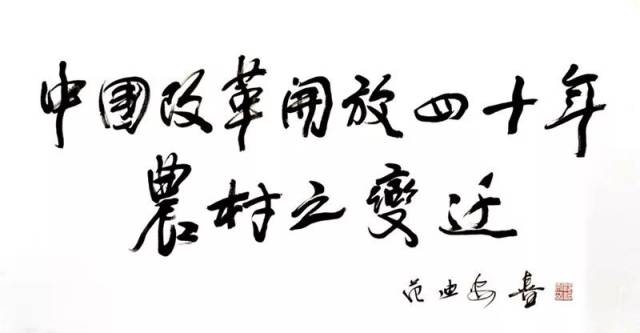 中國改革開放四十年
農村之變迁
范迪安書